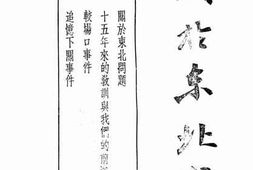 於東北
關於東北問題
十五年來的敎訓與我們的前
較場口事件
追憶下關事件